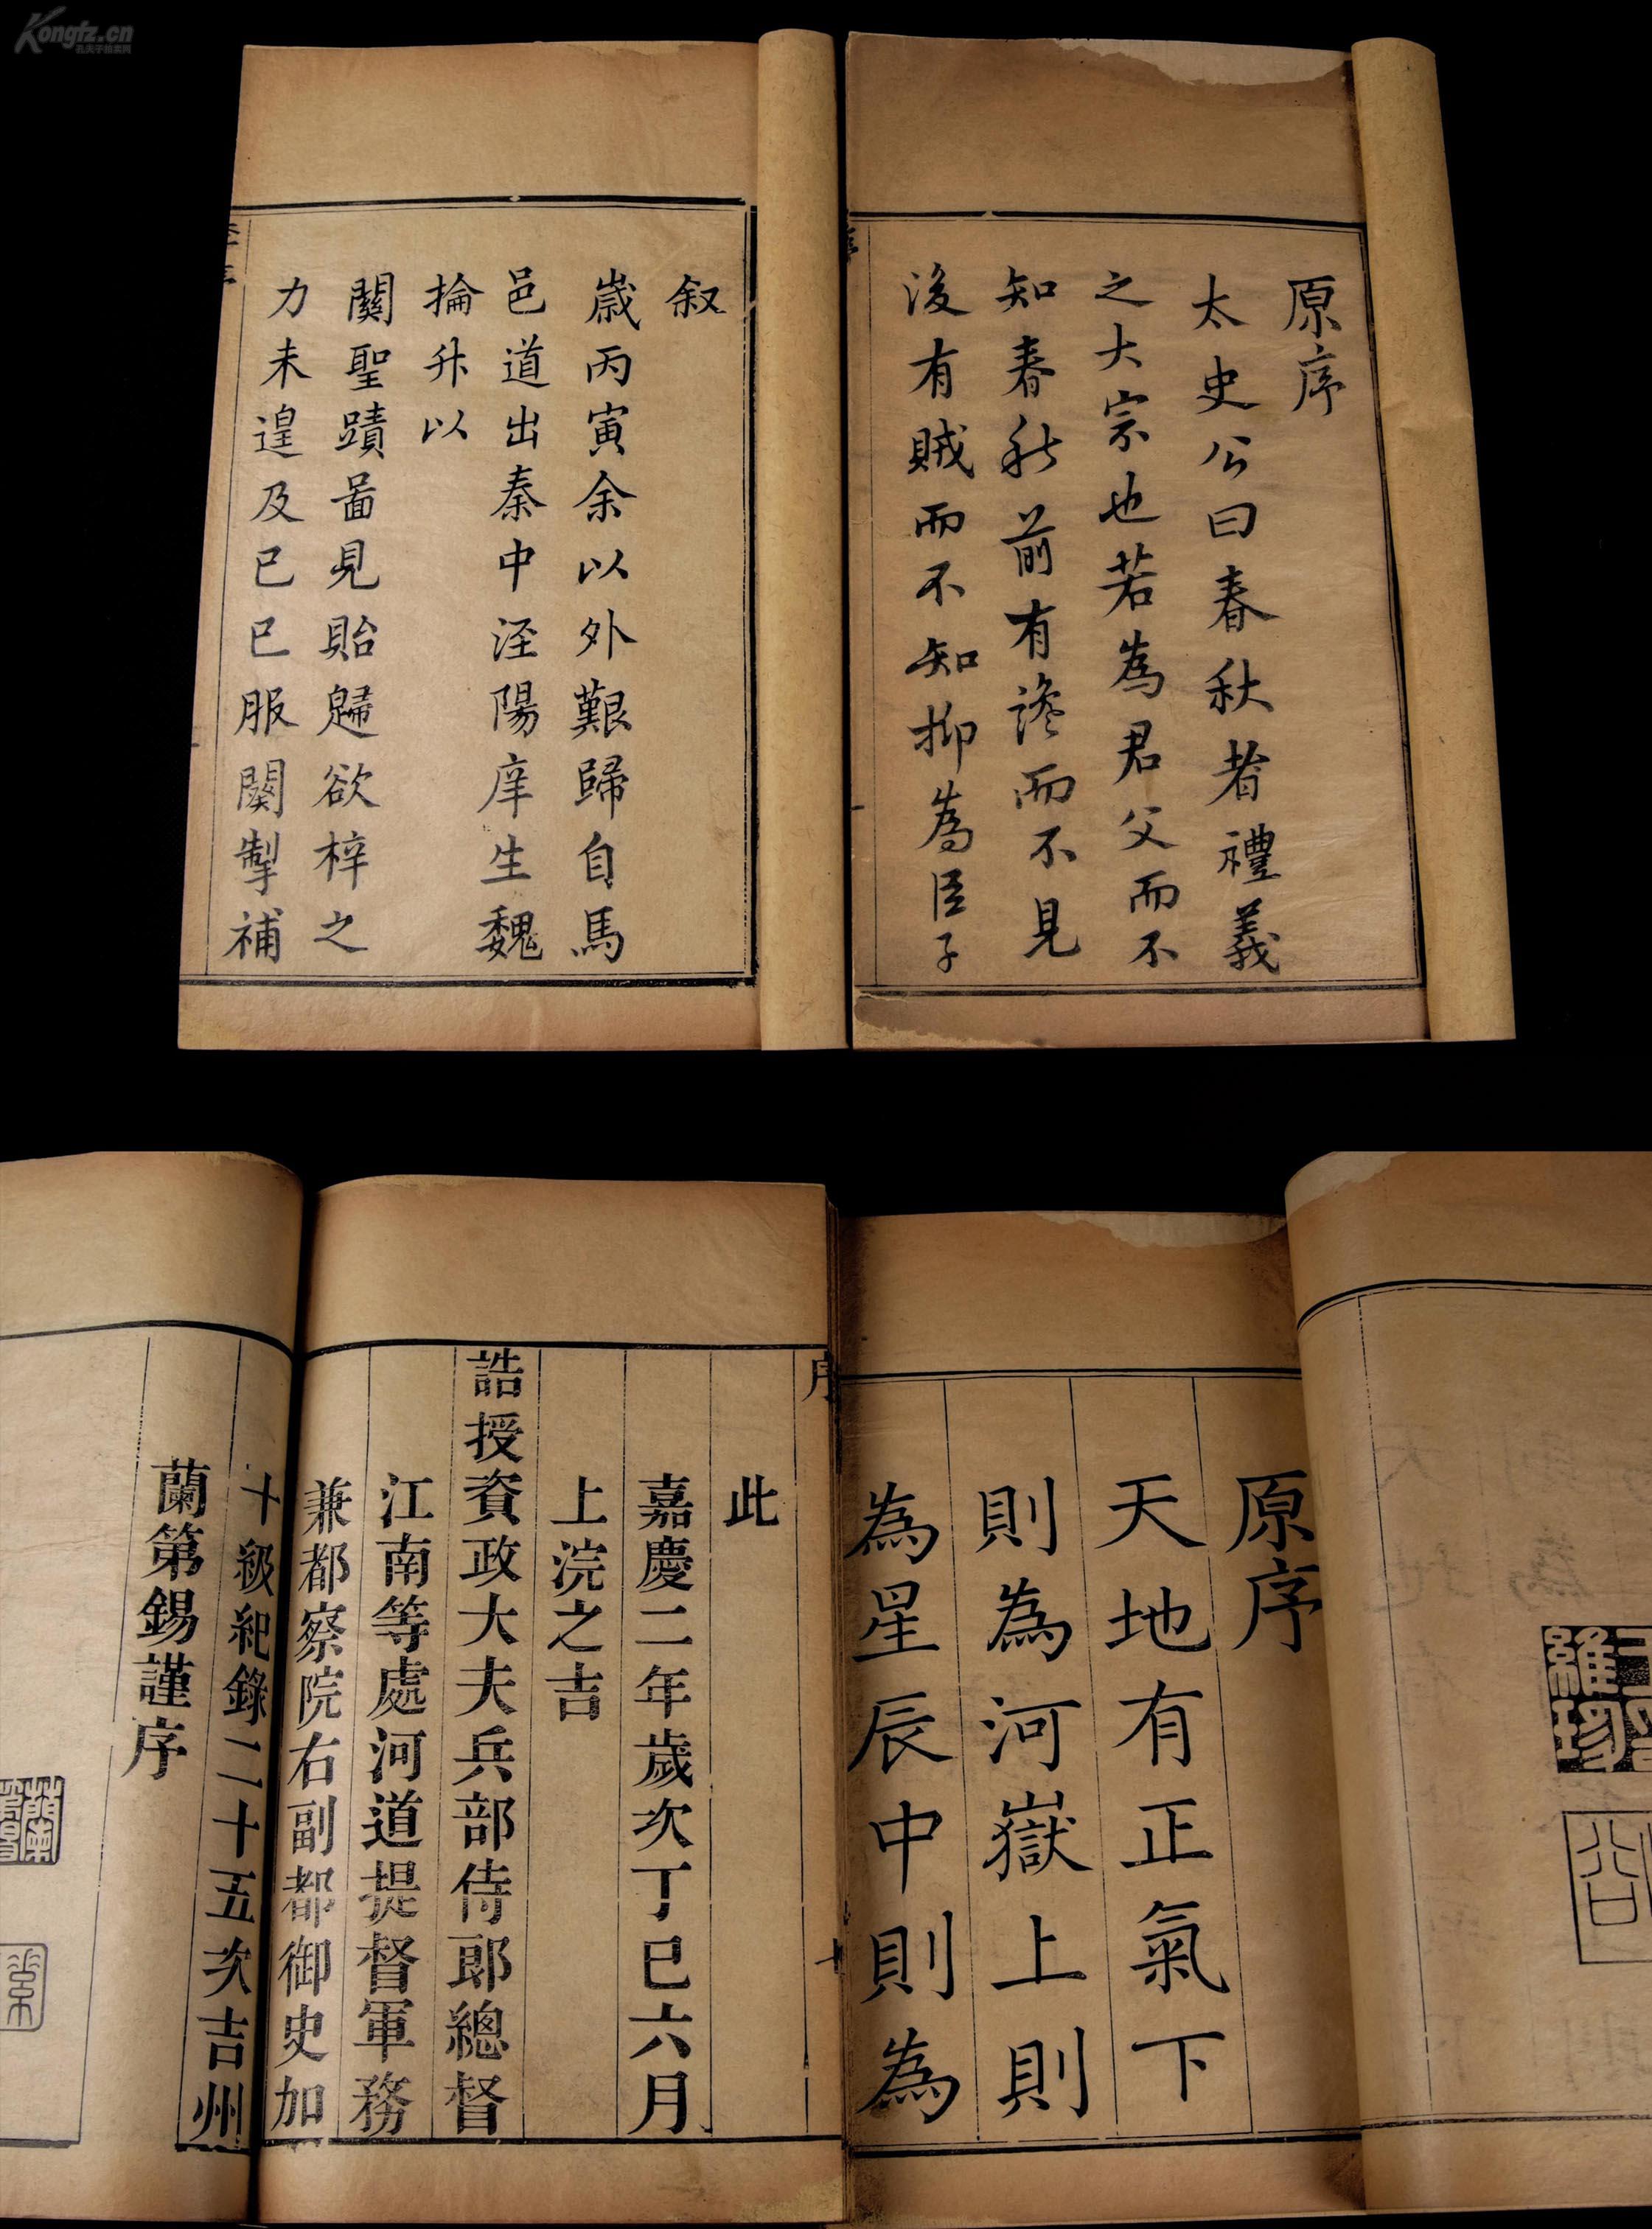 Kongfz.cn
孔夫子拍卖网
原序
太史公曰春秋者禮義
之大宗也若為君父而不
知春秋前有讒而不見
後有賊而不知抑為臣子
叙
歲丙寅余以外艱歸自馬
邑道出秦中涇陽庠生魏
掄升以
關聖蹟啚見貽歸欲梓之
力未遑及己巳服闋掣補
原序
天地有正氣下
則為河嶽上則
為星辰中則為
序
十
此
嘉慶二年歲次丁巳六月
上浣之吉
誥授資政大夫兵部侍郎總督
江南等處河道提督軍務
兼都察院右副都御史加
十級紀錄二十五次吉州
蘭第錫謹序